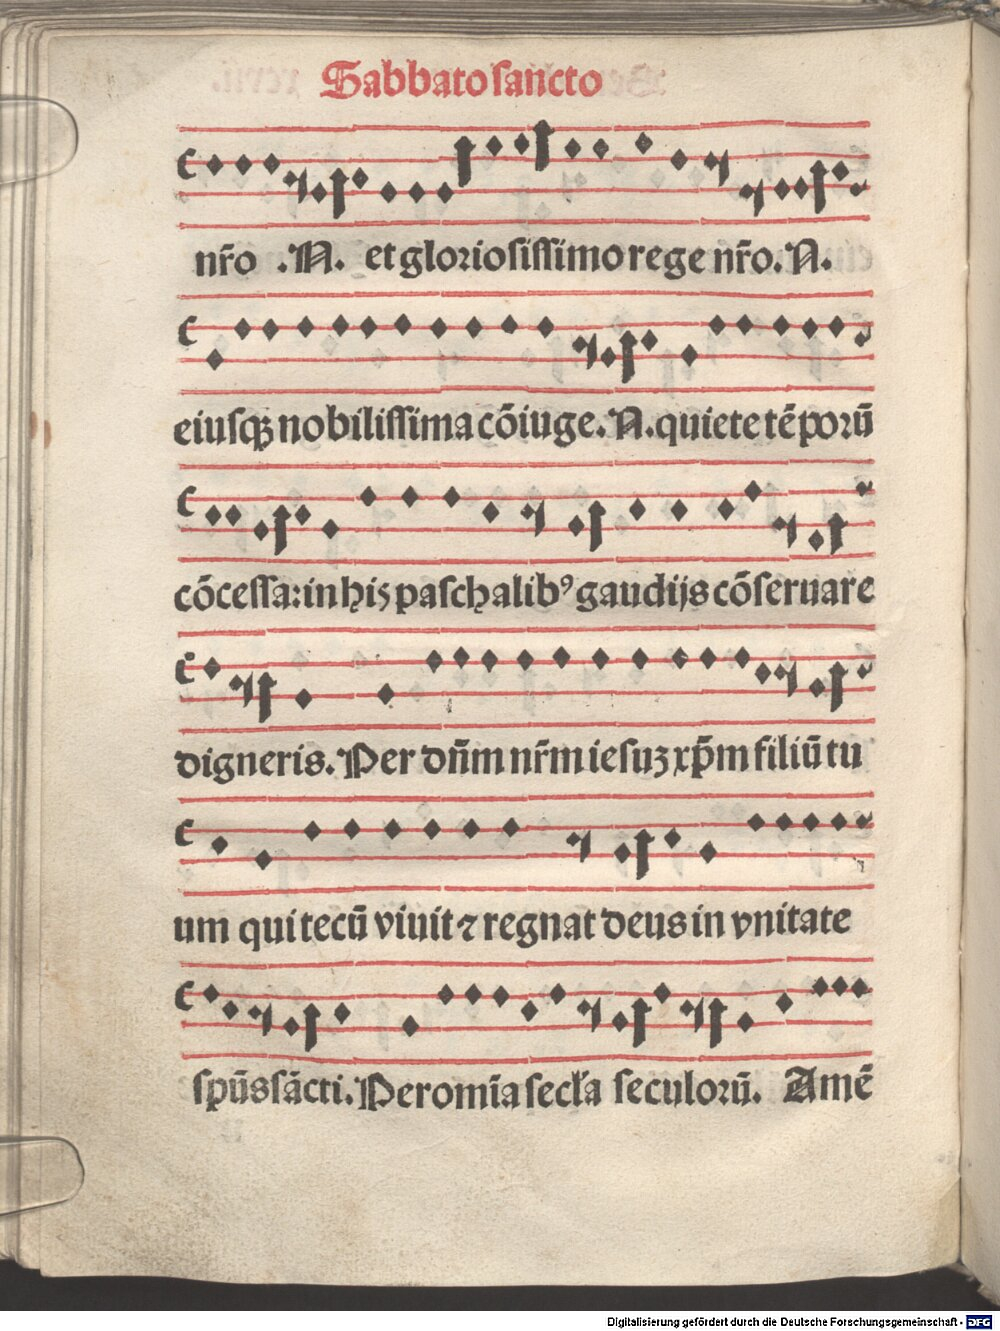 Sabbato sancto
nr̄o .N. et gloriosissimo rege nr̄o. N.
eiusqꝫ nobilissima cōiuge. N. quiete tēporū
cōcessa: in his paschalibꝰ gaudijs cōseruare
digneris. Per dn̄m nr̄m iesuꝫ xp̄m filiū tu
um qui tecū viuit ⁊ regnat deus in vnitate
spūs sācti. Per om̄ia secl'a seculorū. Amē
Digitalisierung gefördert durch die Deutsche Forschungsgemeinschaft - DFG